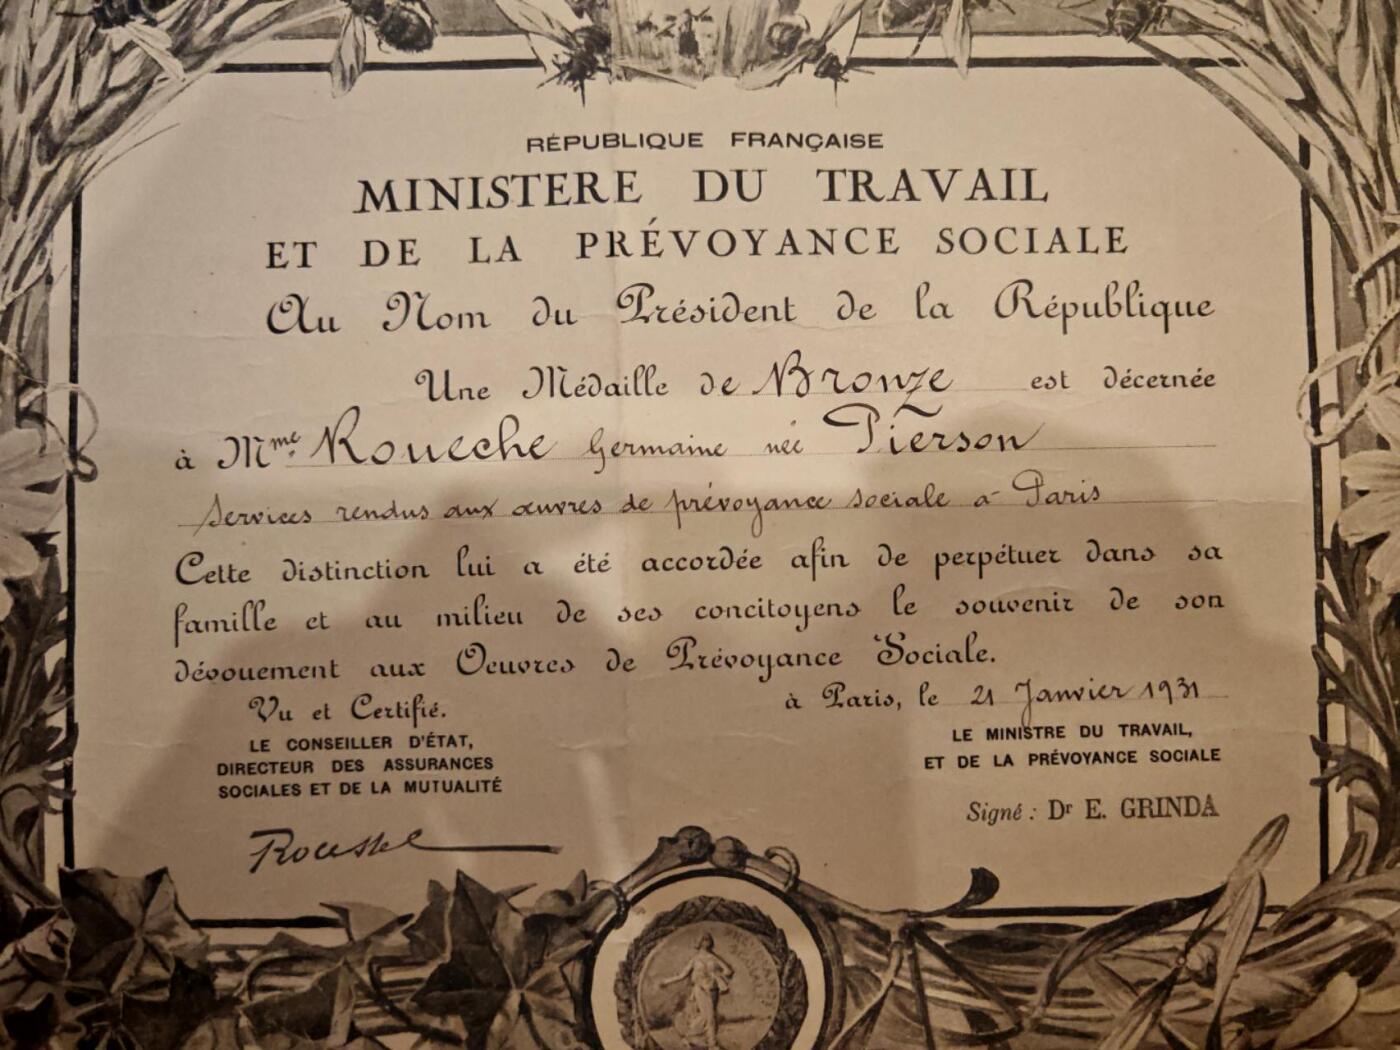 RÉPUBLIQUE FRANÇAISE
MINISTERE DU TRAVAIL
ET DE LA PRÉVOYANCE SOCIALE
Au Nom du Président de la République
Une Médaille de Bronze est décernée
à Mme. Roueche Germaine née Pierson
Services rendus aux œuvres de prévoyance sociale à Paris
Cette distinction lui a été accordée afin de perpétuer dans sa
famille et au milieu de ses concitoyens le souvenir de son
dévouement aux Oeuvres de Prévoyance Sociale.
à Paris, le 21 Janvier 1931
Vu et Certifié.
LE CONSEILLER D'ÉTAT,
DIRECTEUR DES ASSURANCES
SOCIALES ET DE LA MUTUALITÉ
Roussel
LE MINISTRE DU TRAVAIL,
ET DE LA PRÉVOYANCE SOCIALE
Signé : Dr E. GRINDA